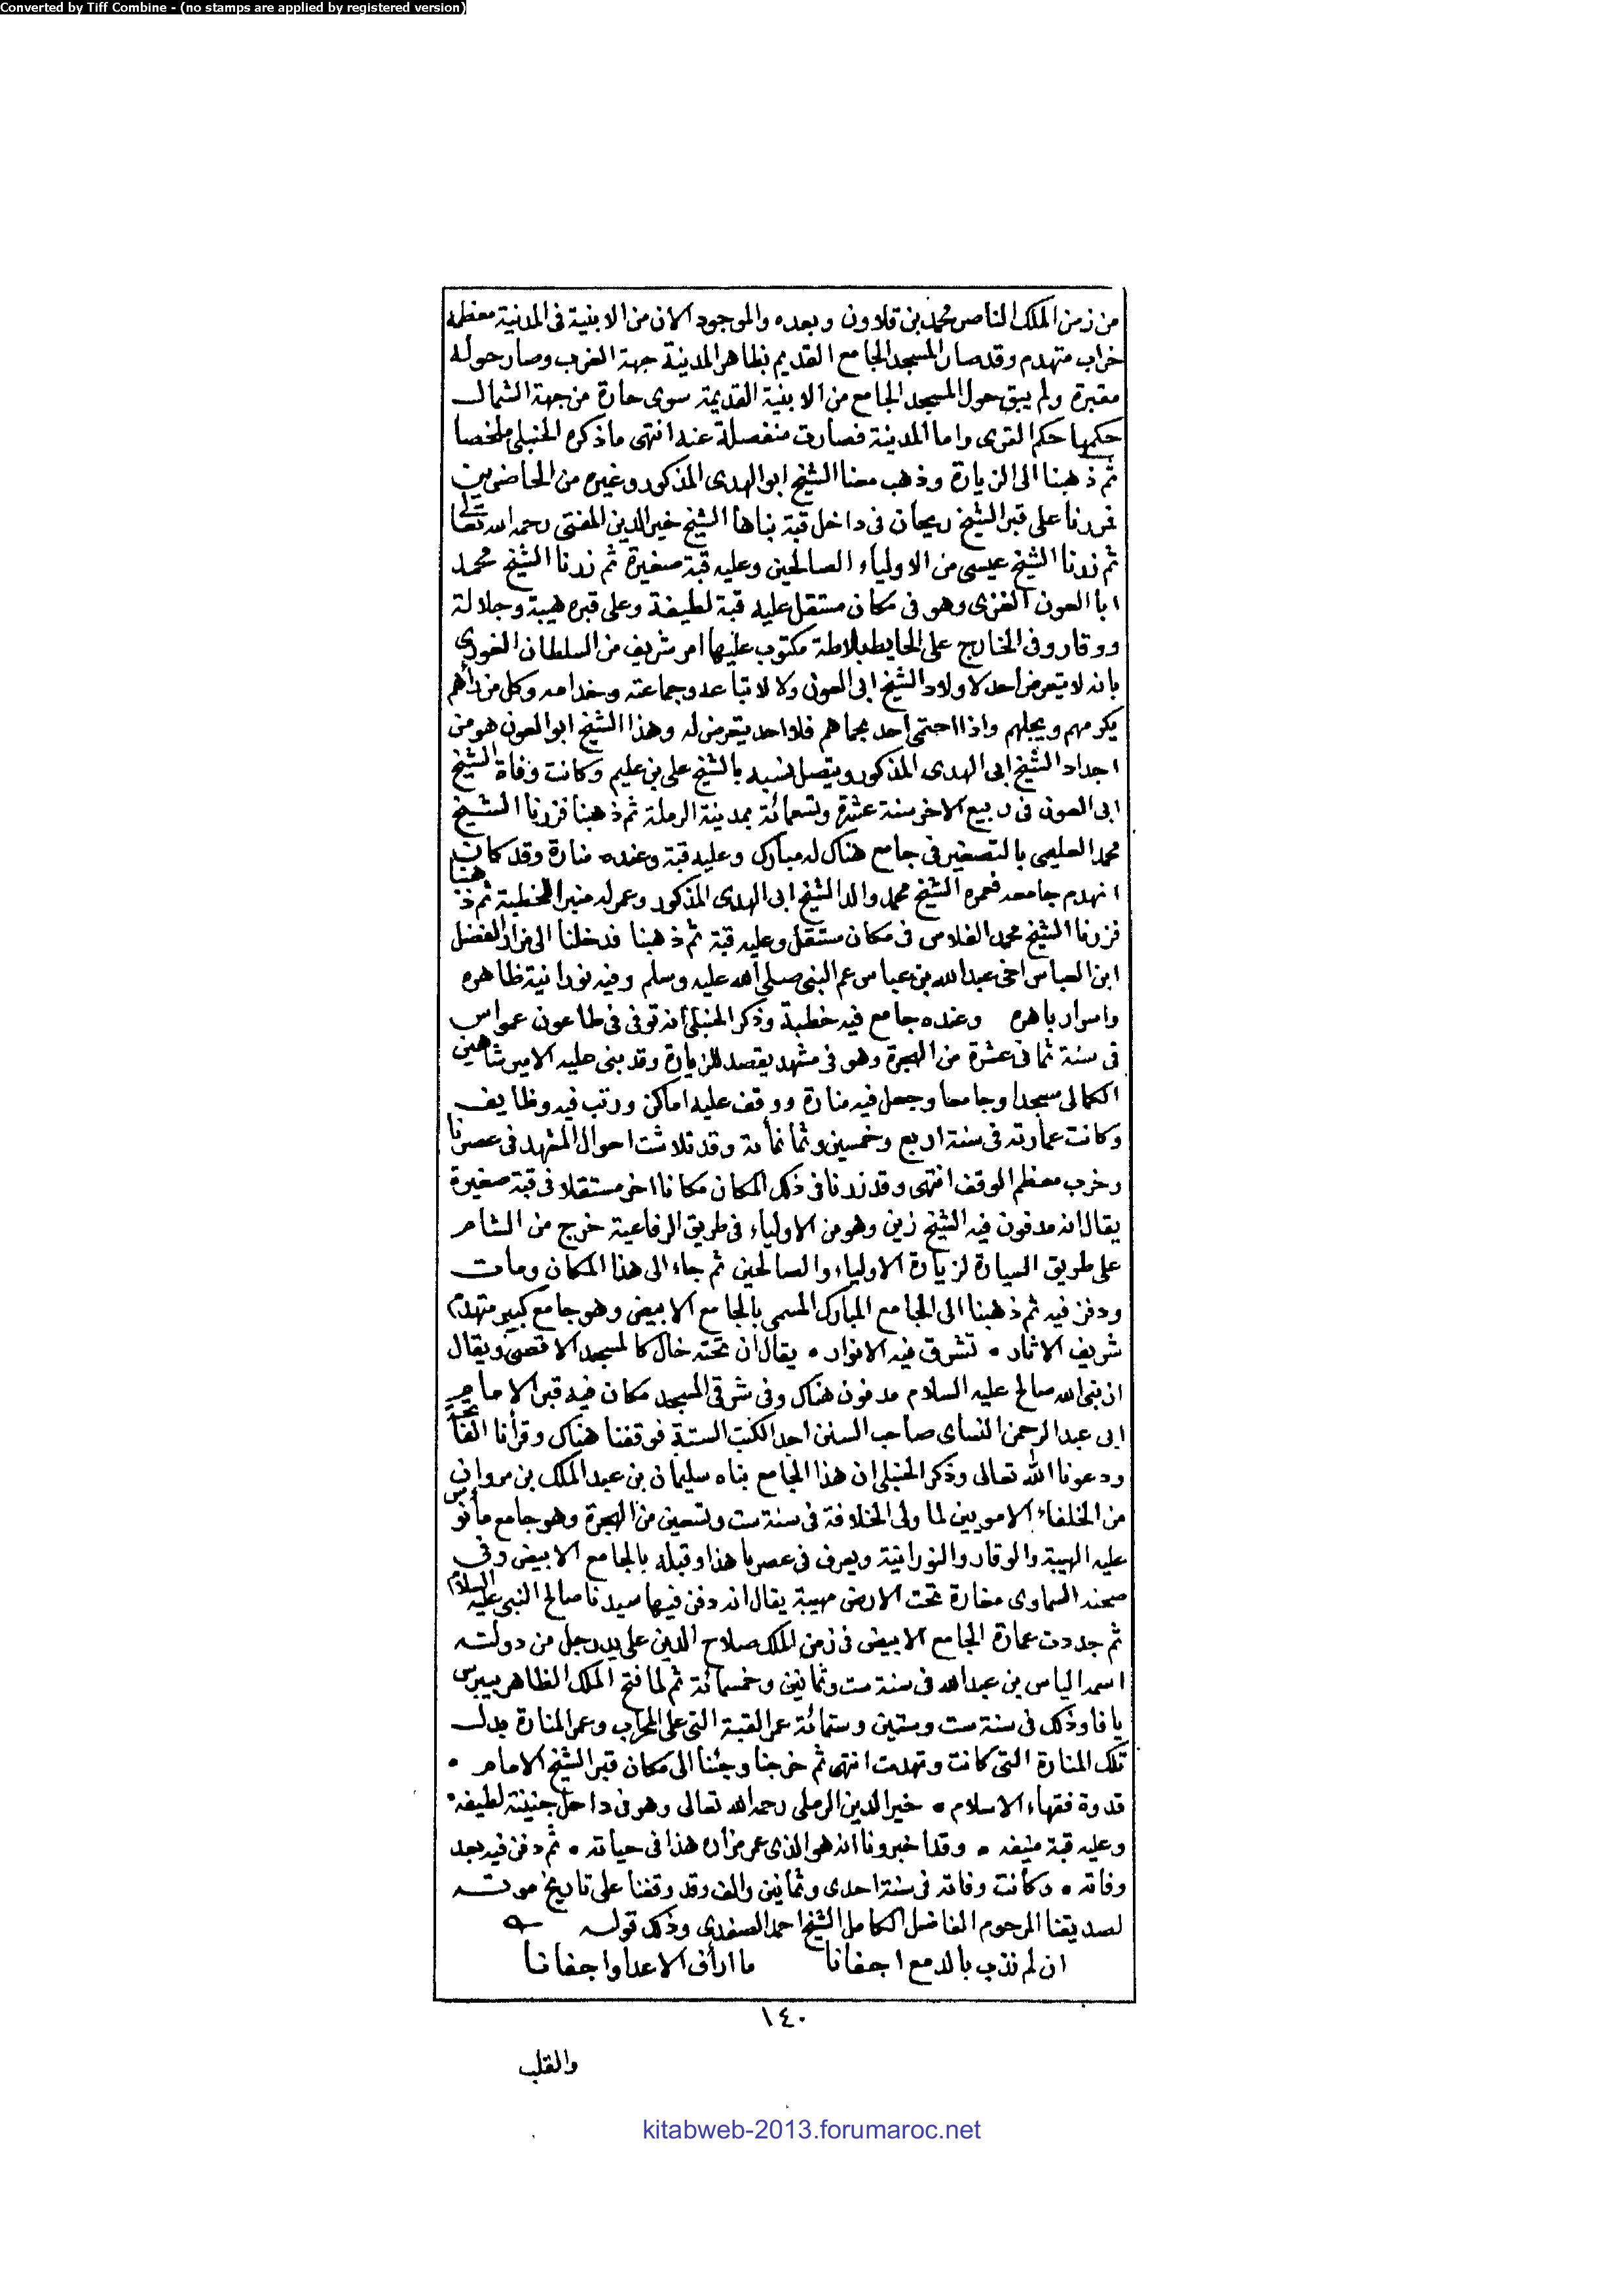 Converted by Tiff Combine - (no stamps are applied by registered version)
من زمن الملك الناصر محمد بن قلاون وبعده والموجود الان من الابنية فى المدنية معظمه
خراب متهدم وقد صار المسجد الجامع القديم بظاهر المدينة جهة الغرب وصار حوله
مقبرة ولم يبق حول المسجد الجامع من الابنية القديمة سوى حارة من جهة الشمال
حكمها حكم القرى واما المدينة فصارت منفصلة عنه انتهى ما ذكره الحنبلى ملخصا
ثم ذهبنا الى الزيارة وذهب معنا الشيخ ابو الهدى المذكور وغيره من الحاضرين
فمررنا على قبر الشيخ ريحان فى داخل قبة بناها الشيخ خير الدين المفتى رحمه الله تعالى
ثم زرنا الشيخ عيسى من الاولياء الصالحين وعليه قبة صغيرة ثم زرنا الشيخ محمد
ابا العون الغزى وهو فى مكان مستقل عليه قبة لطيفة وعلى قبره هيبة وجلالة
ووقار وفى الخارج على الحايط بلاطة مكتوب عليها امر شريف من السلطان الغورى
بانه لا يتعرض احد لاولاد الشيخ ابى العون ولا لاتباعه وجماعته وخدامه وكل من رأهم
يكرمهم ويجلهم واذا احتمى احد بحماهم فلا احد يتعرض له وهذا الشيخ ابو العون هو من
اجداد الشيخ ابى الهدى المذكور ويتصل نسبه بالشيخ على بن عليم وكانت وفاة الشيخ
ابى العون فى ربيع الاخر سنة عشرة وتسعمائة بمدينة الرملة ثم ذهبنا فزرنا الشيخ
محمد العليمى بالتصغير فى جامع هناك له مبارك وعليه قبة وعنده منارة وقد كان
انهدم جامعه فعمره الشيخ محمد والد الشيخ ابى الهدى المذكور وعمر له منبرا للخطبة ثم ذهبنا
فزرنا الشيخ محمد الغلاس فى مكان مستقل وعليه قبة ثم ذهبنا فدخلنا الى مزار الفضل
ابن العباس اخى عبد الله بن عباس عم النبى صلى الله عليه وسلم وفيه نورانية ظاهره
واسرار باهره وعنده جامع فيه خطبة وذكر الحنبلى انه توفى فى طاعون عمواس
فى سنة ثمانى عشرة من الهجرة وهو فى مشهد يقصد للزيارة وقد بنى عليه الامير شاهين
الكمالى مسجدا وجامعا وجعل فيه منارة ووقف عليه اماكن ورتب فيه وظايف
وكانت عمارته فى سنة اربع وخمسين وثمانمأية وقد تلاشت احوال المشهد فى عصرنا
وخرب معظم الوقف انتهى وقد زرنا فى ذلك المكان مكانا اخر مستقلا فى قبة صغيرة
يقال انه مدفون فيه الشيخ زين وهو من الاولياء فى طريق الرفاعية خرج من الشام
على طريق السيارة لزيارة الاولياء والصالحين ثم جاء الى هذا المكان ومات
ودفن فيه ثم ذهبنا الى الجامع المبارك المسمى بالجامع الابيض وهو جامع كبير متهدم
شريف الاثار • تشرق فيه الانوار • يقال ان تحته خال كالمسجد الاقصى ويقال
ان نبى الله صالح عليه السلام مدفون هناك وفى شرقى المسجد مكان فيه قبر الامام
ابى عبد الرحمن النساى صاحب السنن احد الكتب الستة فوقفنا هناك وقرأنا الفاتحة
ودعونا الله تعالى وذكر الحنبلى ان هذا الجامع بناه سليمان بن عبد الملك بن مروان
من الخلفاء الامويين لما ولى الخلافة فى سنة ست وتسعين من الهجرة وهو جامع مأنوس
عليه الهيبة والوقار والنورانية ويعرف فى عصرنا هذا وقبله بالجامع الابيض وفى
صحنه السماوى مغارة تحت الارض مهيبة يقال انه دفن فيها سيدنا صالح النبى عليه السلام
ثم جددت عمارة الجامع الابيض فى زمن الملك صلاح الدين على يد رجل من دولته
اسمه الياس بن عبد الله فى سنة ست وثمانين وخمسمائة ثم لما فتح الملك الظاهر بيبرس
يافا وذلك فى سنة ست وستين وستمائة عمر القبة التى على المحراب وعمر المنارة بدل
تلك المنارة التى كانت وتهدمت انتهى ثم خرجنا وجئنا الى مكان قبر الشيخ الامام •
قدوة فقهاء الاسلام • خير الدين الرملى رحمه الله تعالى وهو فى داخل جنينة لطيفه •
وعليه قبة منيفه • وقد اخبرونا انه هو الذى عمر مزاره هذا فى حياته • ثم دفن فيه بعد
وفاته • وكانت وفاته فى سنة احدى وثمانين والف وقد وقفنا على تاريخ موته
لصديقنا المرحوم الفاضل الكامل الشيخ احمد الصفدى وذلك قوله
ان لم نذب بالدمع اجفانا ما ارأف الاعدا واجفانا
١٤٠
والقلب
kitabweb-2013.forumaroc.net